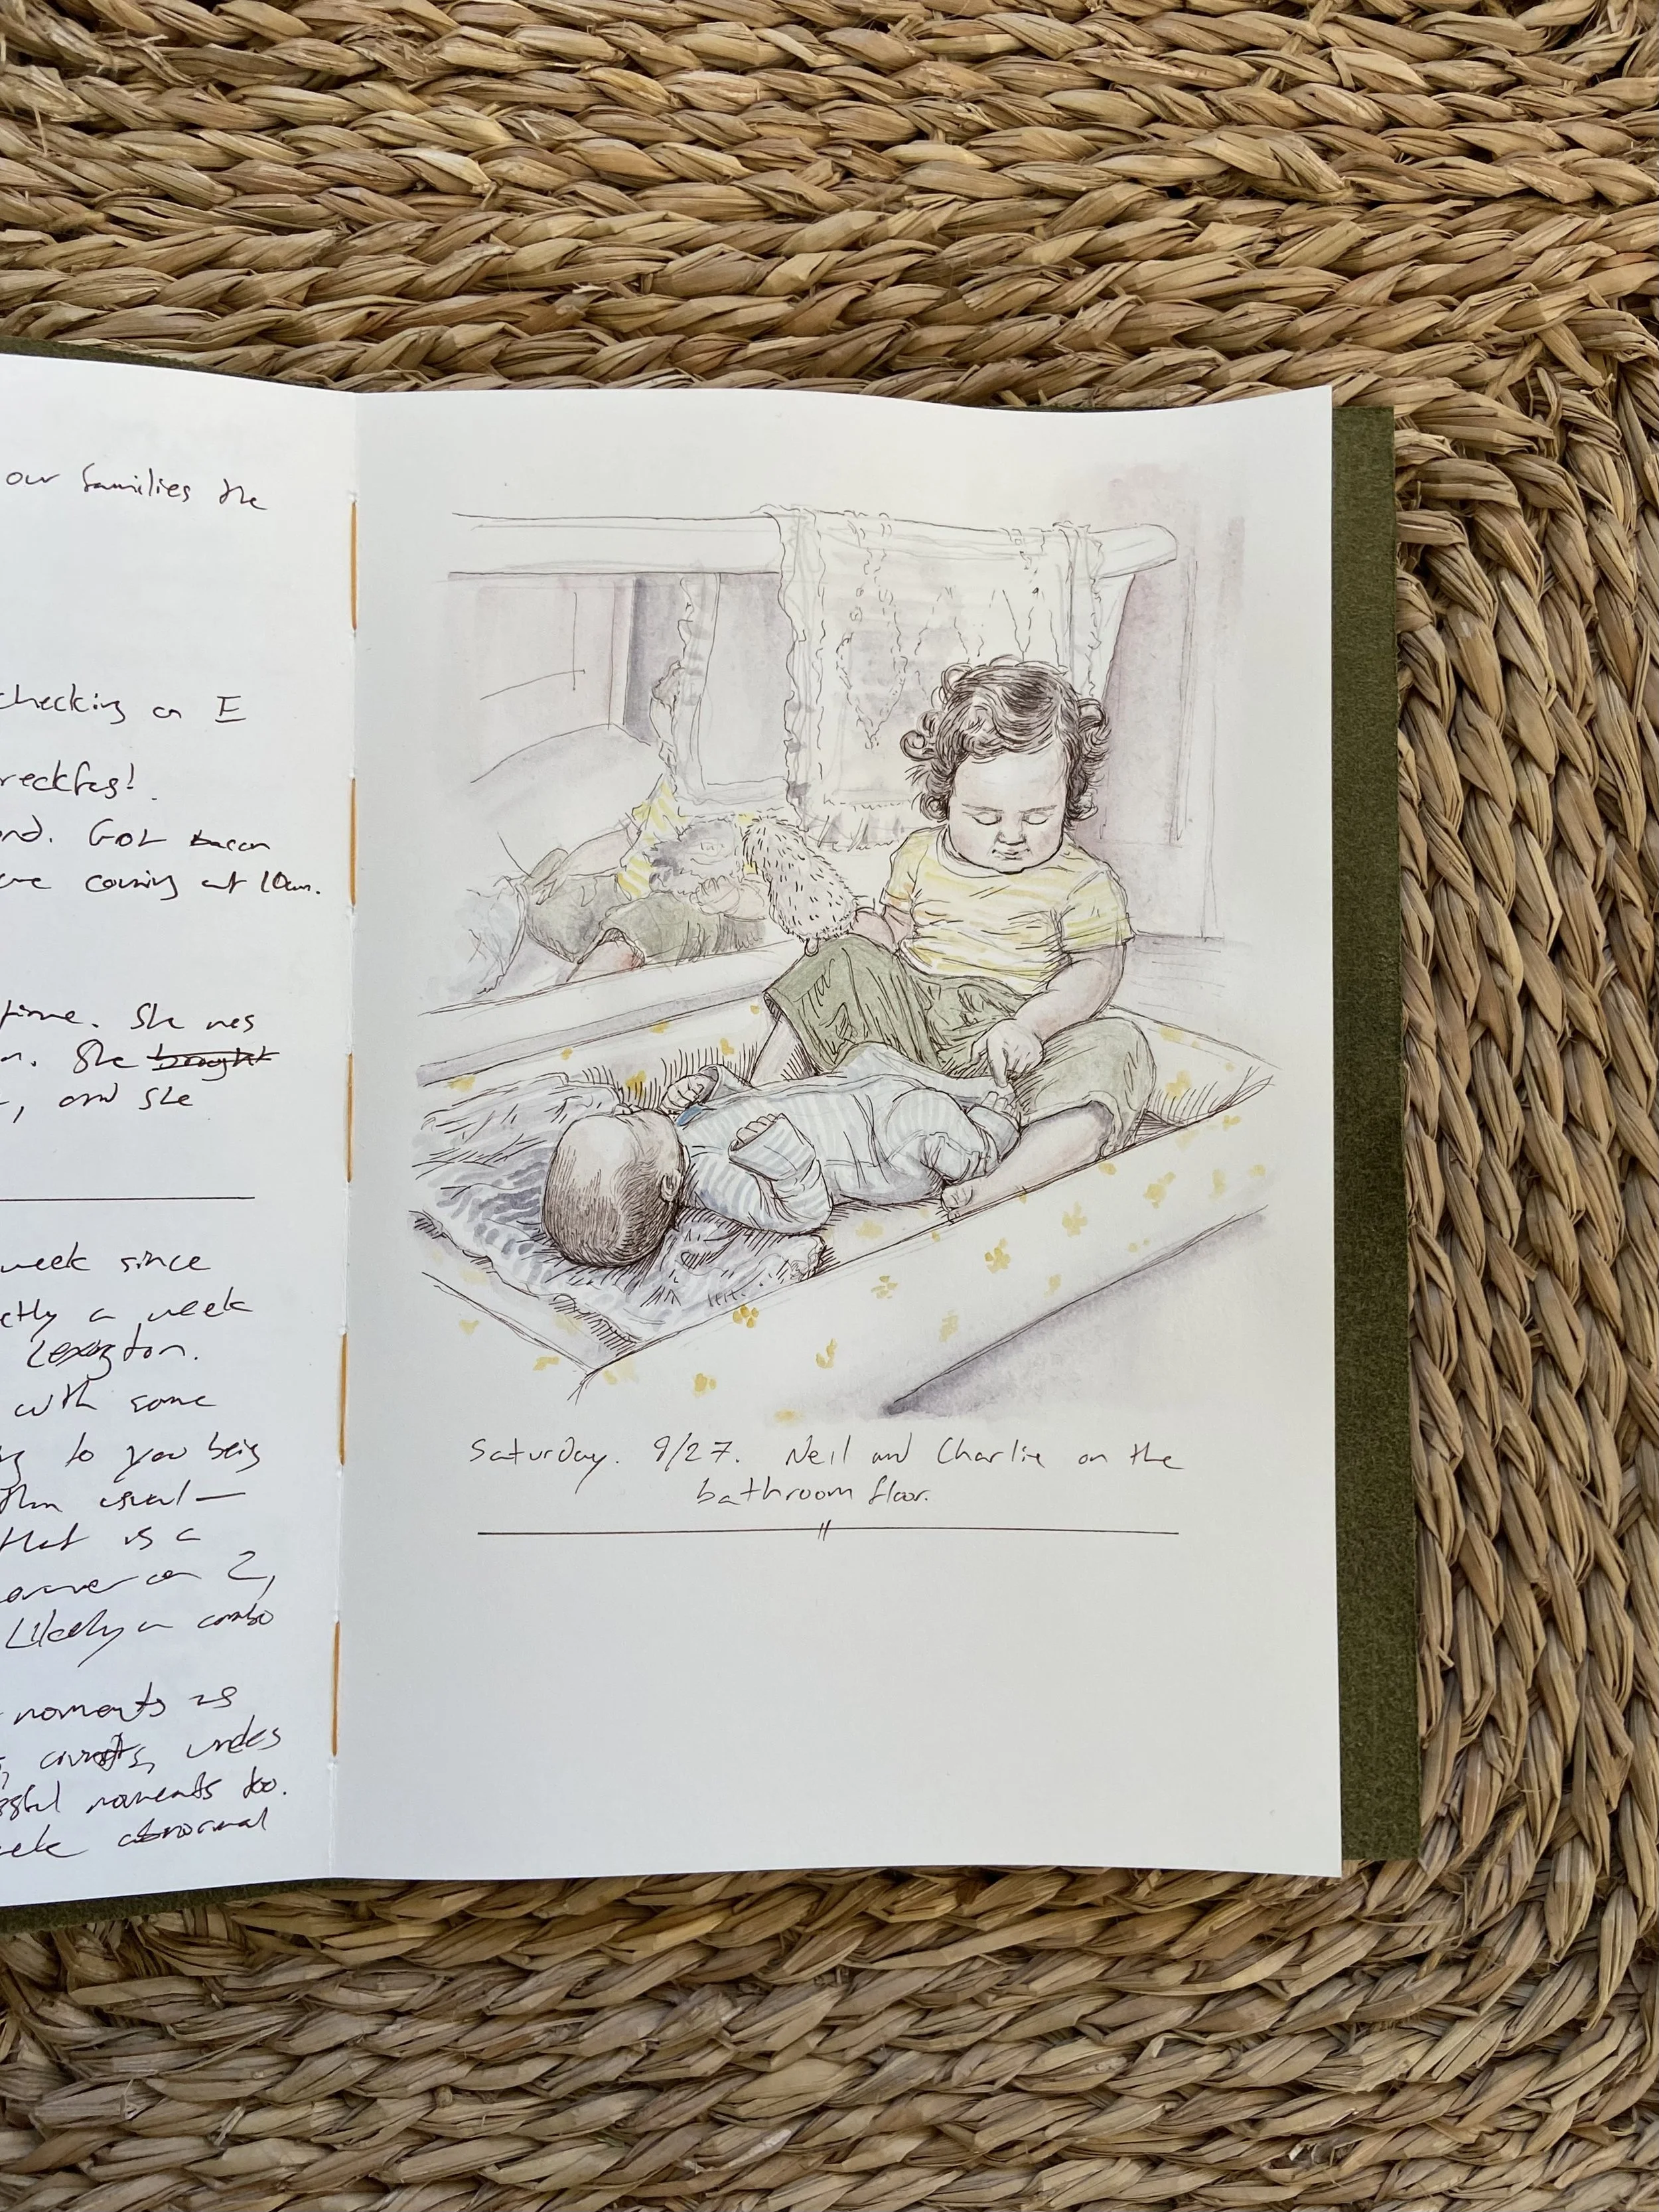 our families the
checking on E
reckfas!
ond. Got bacon
are coming at 10am.
time. She was
n. She bought
, and she
week since
ctly a week
Lexington.
with some
to you being
than usual—
that is a
on 2,
Likely a combo
moments as
undes
moments too.
abnormal
Saturday. 9/27. Neil and Charlie on the
bathroom floor.